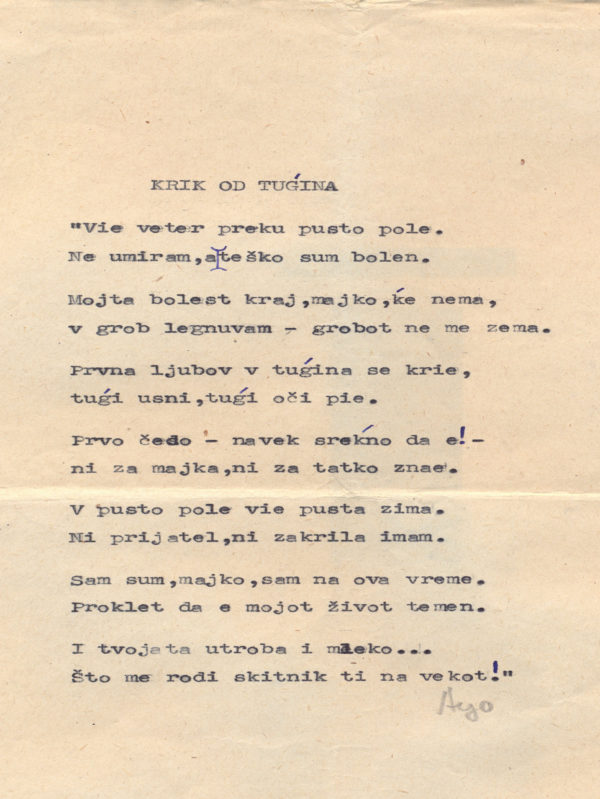 KRIK OD TUǴINA
"Vie veter preku pusto pole.
Ne umiram,a teško sum bolen.
Mojta bolest kraj,majko,ḱe nema,
v grob legnuvam - grobot ne me zema.
Prvna ljubov v tuǵina se krie,
tuǵi usni,tuǵi oči pie.
Prvo čedo - navek sreḱno da e!-
ni za majka,ni za tatko znae.
V pusto pole vie pusta zima.
Ni prijatel,ni zakrila imam.
Sam sum,majko,sam na ova vreme.
Proklet da e mojot život temen.
I tvojata utroba i mleko...
Što me rodi skitnik ti na vekot!"